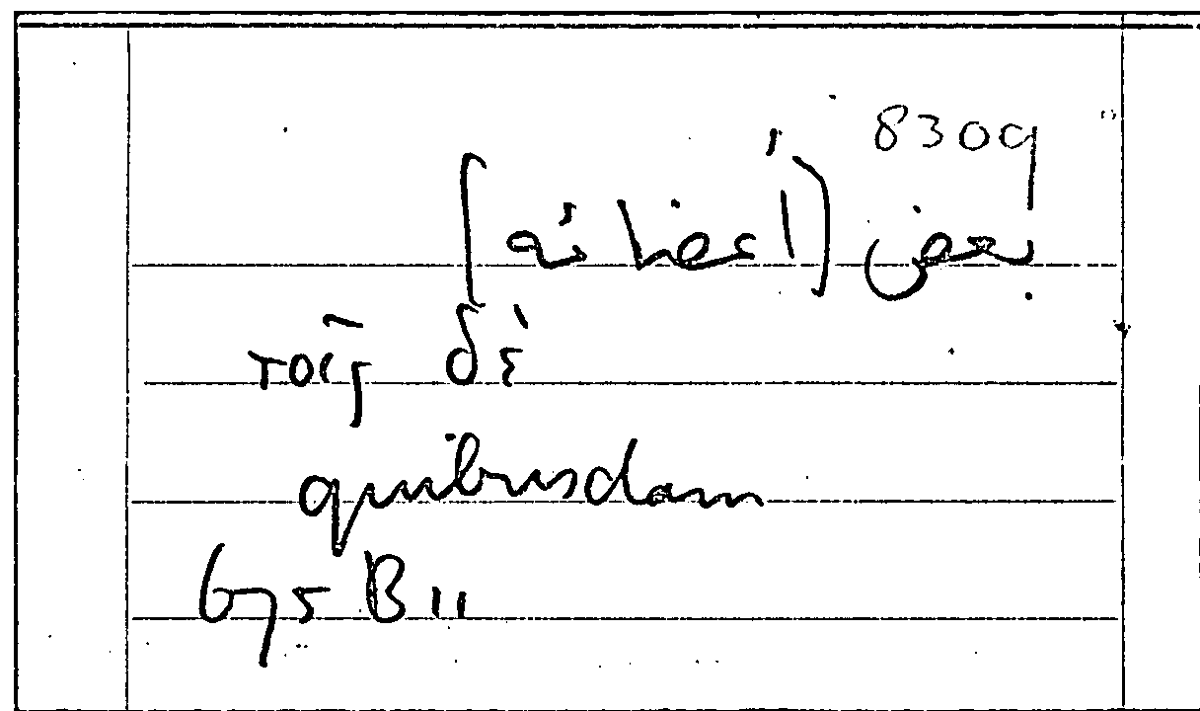 8309
بعض (أعضائه)
τοῖς δὲ
quibusdam
675 B 11